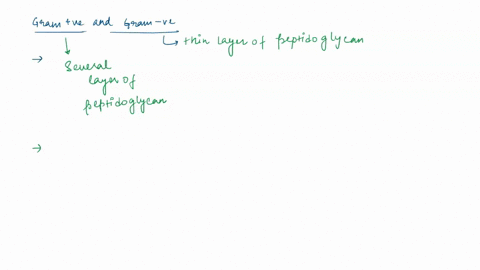 Gram +ve and Gram -ve
→ thin layer of peptidoglycan
→ Several
layer of
peptidoglycan
→